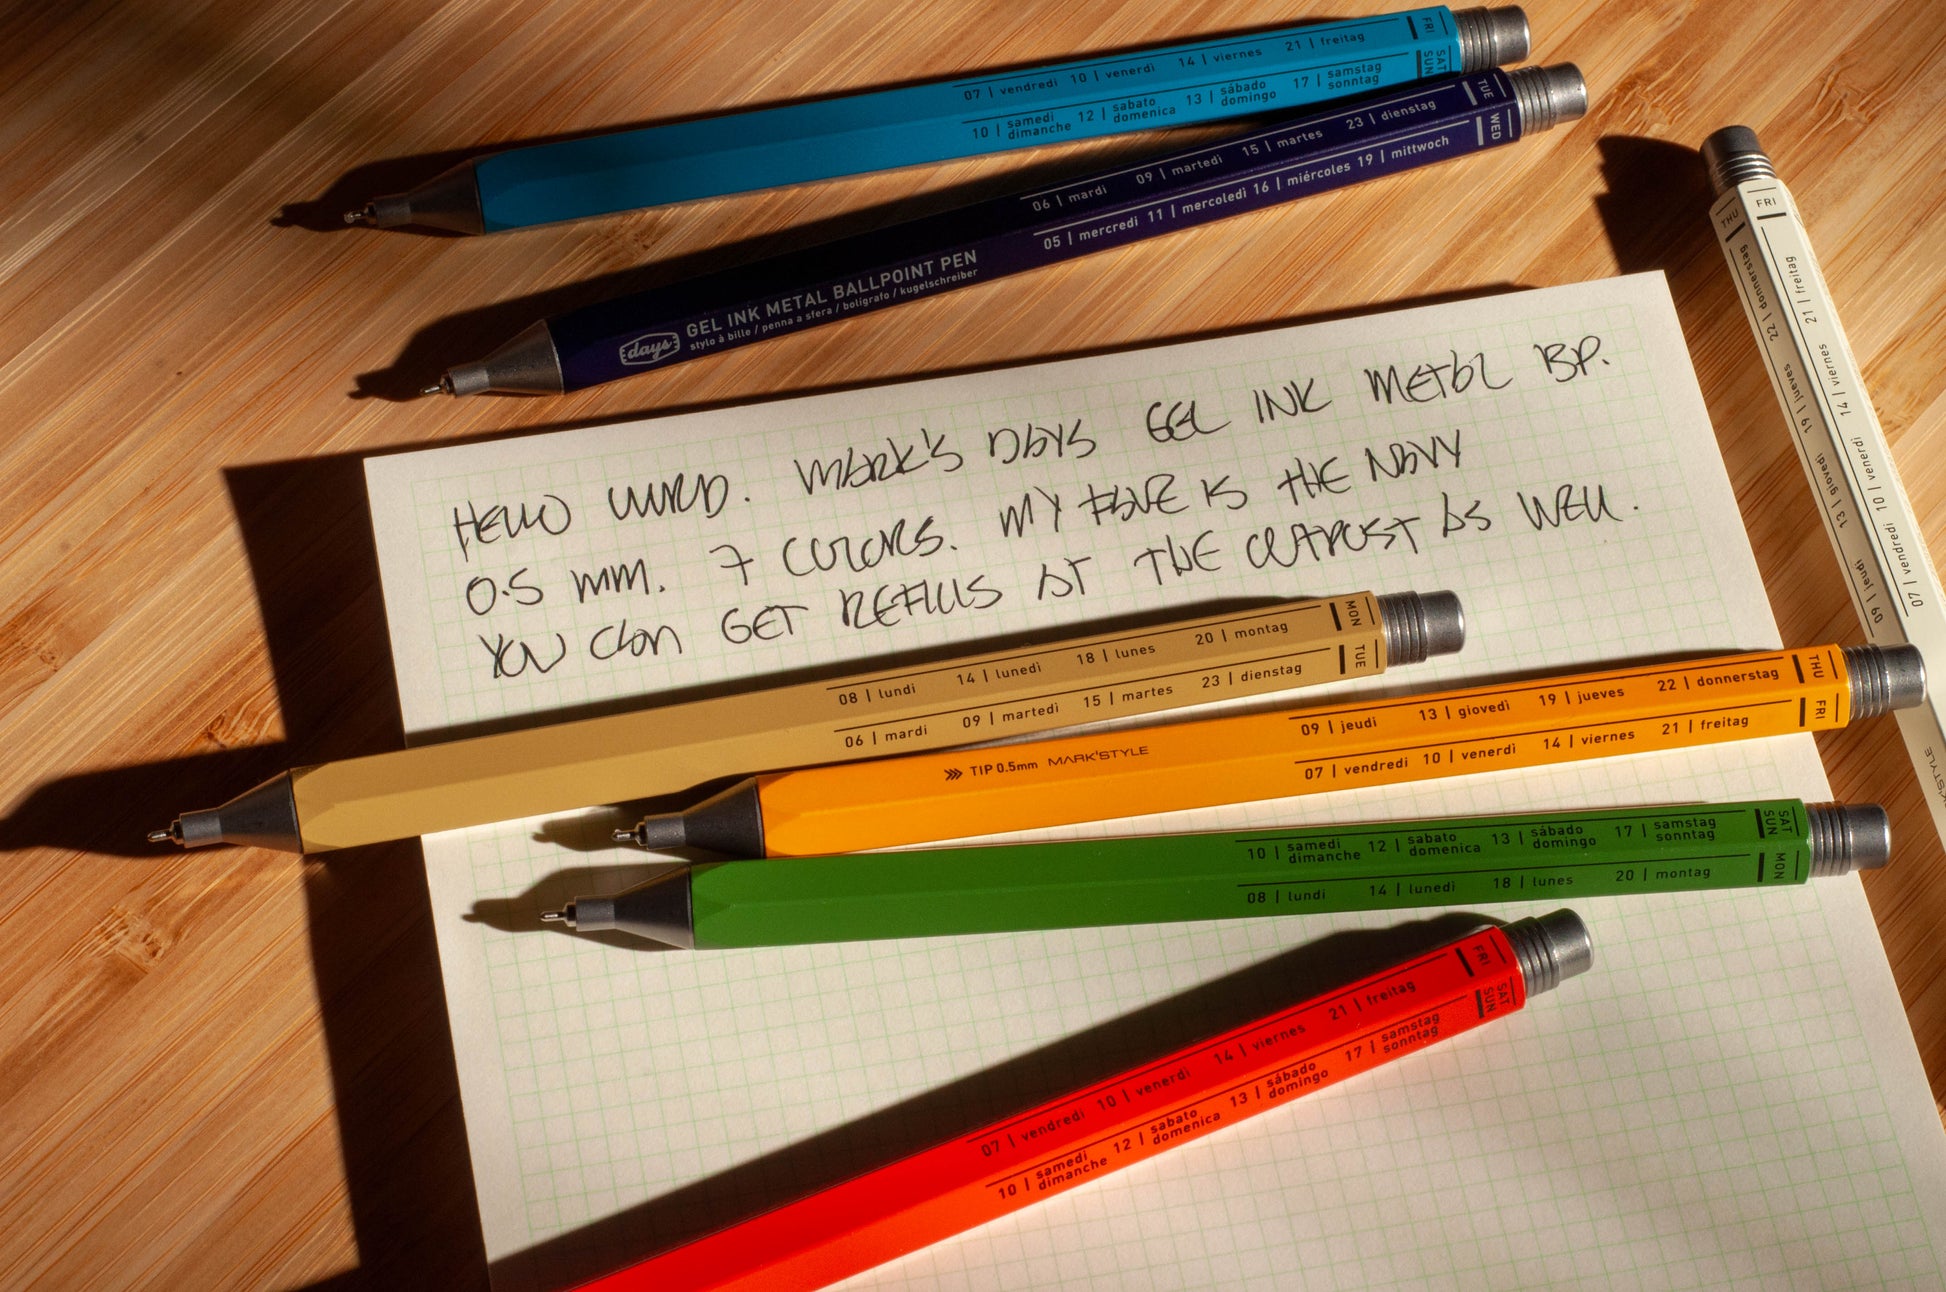 07 | vendredi 10 | venerdì 14 | viernes 21 | freitag FRI
10 | samedi dimanche 12 | sabato domenica 13 | sábado domingo 17 | samstag sonntag SAT SUN
06 | mardi 09 | martedì 15 | martes 23 | dienstag TUE
05 | mercredi 11 | mercoledì 16 | miércoles 19 | mittwoch WED
days GEL INK METAL BALLPOINT PEN
stylo à bille / penna a sfera / bolígrafo / kugelschreiber
THU 22 | donnerstag 19 | jueves 13 | giovedì 09 | jeudi
FRI 21 | freitag 14 | viernes 10 | venerdì 07 | vendredi
HELLO WURLD. MARK'S DAYS GEL INK METAL BP.
0.5 MM. 7 COLORS. MY FAVE IS THE NAVY
YOU CAN GET REFILLS AT THE OUTPOST AS WELL.
08 | lundi 14 | lunedì 18 | lunes 20 | montag MON
06 | mardi 09 | martedì 15 | martes 23 | dienstag TUE
09 | jeudi 13 | giovedì 19 | jueves 22 | donnerstag THU
TIP 0.5mm MARK'STYLE
07 | vendredi 10 | venerdì 14 | viernes 21 | freitag FRI
10 | samedi dimanche 12 | sabato domenica 13 | sábado domingo 17 | samstag sonntag SAT SUN
08 | lundi 14 | lunedì 18 | lunes 20 | montag MON
07 | vendredi 10 | venerdì 14 | viernes 21 | freitag FRI
10 | samedi dimanche 12 | sabato domenica 13 | sábado domingo 17 | samstag sonntag SAT SUN